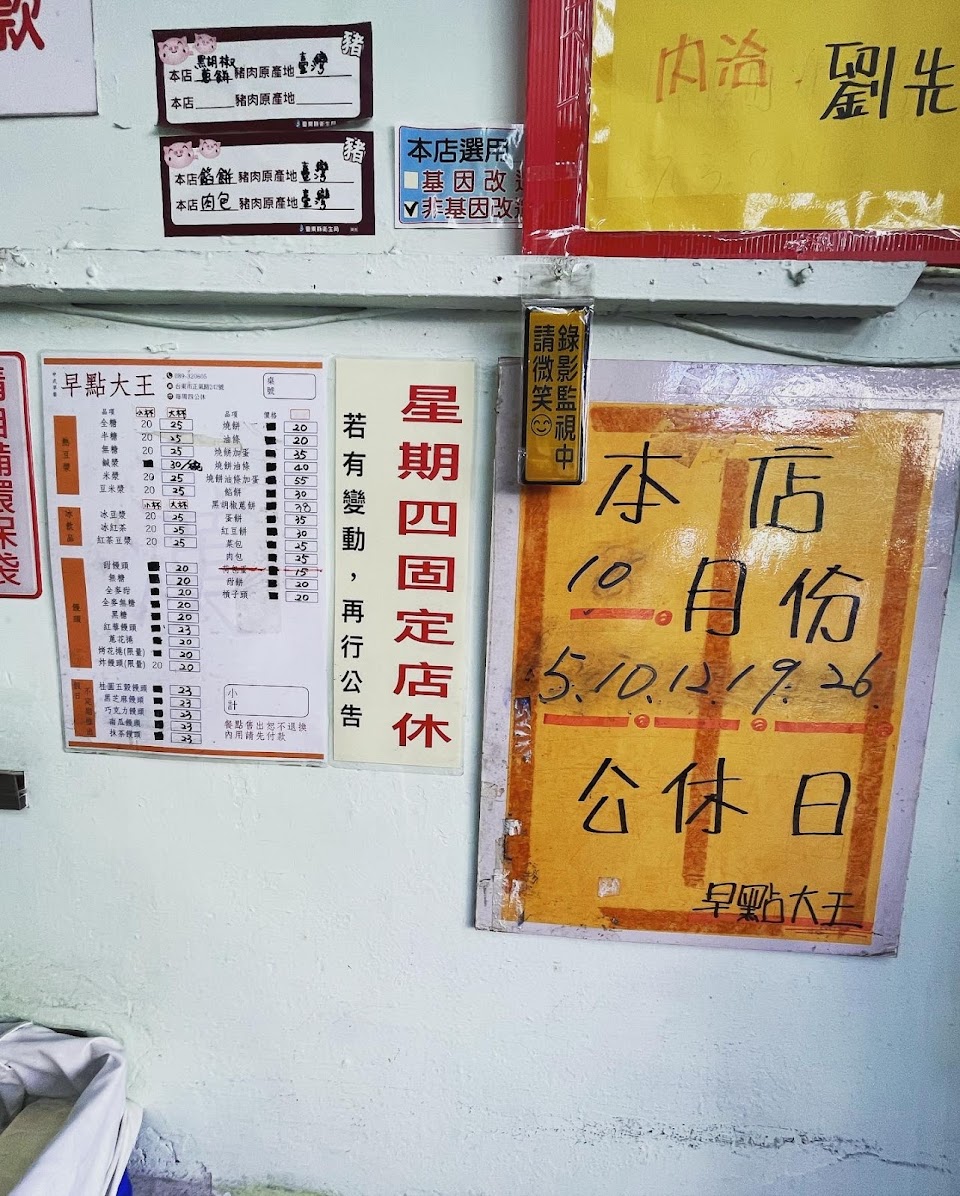 款
豬
本店黑胡椒蔥餅豬肉原產地臺灣
本店 豬肉原產地
臺東縣衛生局
豬
本店餡餅豬肉原產地臺灣
本店肉包豬肉原產地臺灣
臺東縣衛生局
本店選用
基因改造
非基因改造
內洽
劉先
錄影監視中
請微笑
請自備環保袋
早點大王
089-320605
台東市正氣路242號
每周四公休
桌號
品項 小杯 大杯
熱豆漿
全糖 20 25
半糖 20 25
無糖 20 25
鹹漿 30
米漿 20 25
豆米漿 20 25
小杯 大杯
冰飲品
冰豆漿 20 25
冰紅茶 20 25
紅茶豆漿 20 25
饅頭
甜饅頭 20
無糖 20
全麥甜 20
全麥無糖 20
黑糖 20
紅藜饅頭 23
蔥花捲 20
烤花捲(限量) 20
炸饅頭(限量) 20 20
桂圓五穀饅頭 23
黑芝麻饅頭 23
巧克力饅頭 23
南瓜饅頭 23
抹茶饅頭 23
品項 價格
燒餅 20
油條 20
燒餅加蛋 35
燒餅油條 40
燒餅油條加蛋 55
餡餅 30
黑胡椒蔥餅 38
蛋餅 35
紅豆餅 30
菜包 25
肉包 25
荷包蛋 15
甜餅 20
槓子頭 20
小計
餐點售出恕不退換
內用請先付款
星期四固定店休
若有變動，再行公告
本店
10月份
5.10.12.19.26.
公休日
早點大王